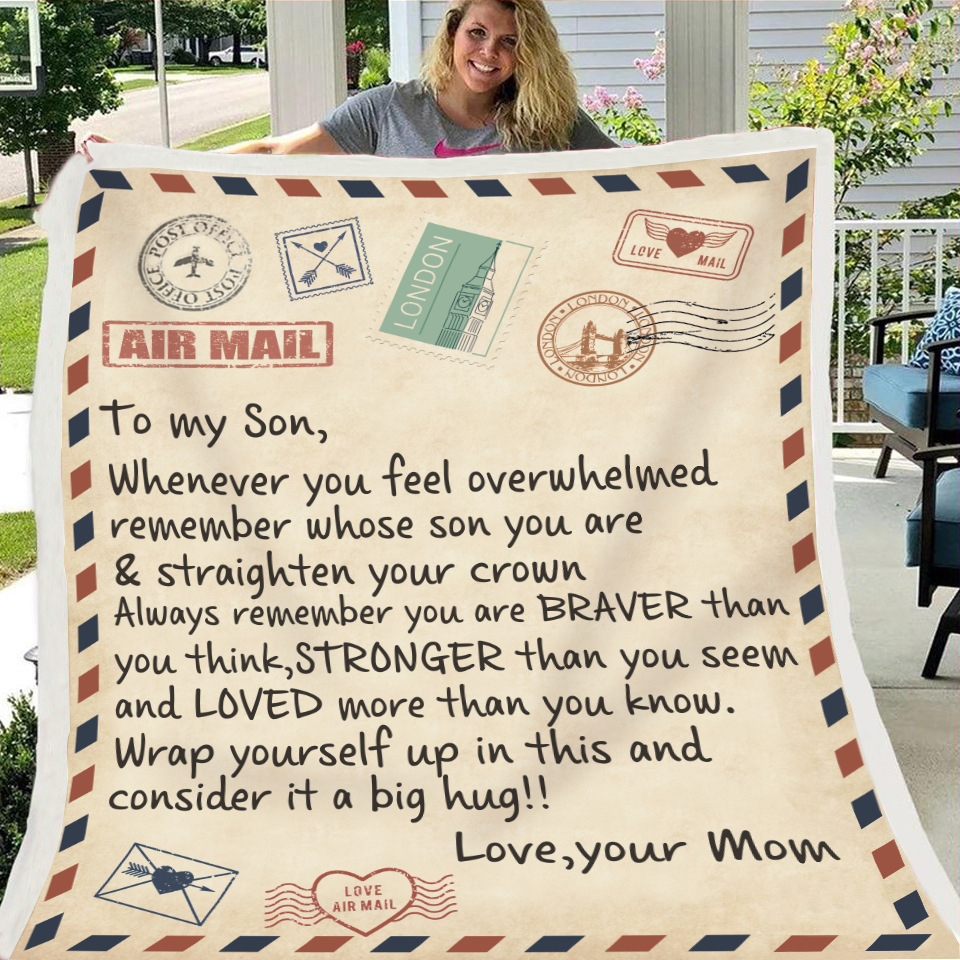 POST OFFICE POST OFFICE
LONDON
LOVE MAIL
LONDON · LONDON · LONDON · LONDON
AIR MAIL
To my Son,
Whenever you feel overwhelmed
remember whose son you are
& straighten your crown
Always remember you are BRAVER than
you think,STRONGER than you seem
and LOVED more than you know.
Wrap yourself up in this and
consider it a big hug!!
Love,your Mom
LOVE
AIR MAIL